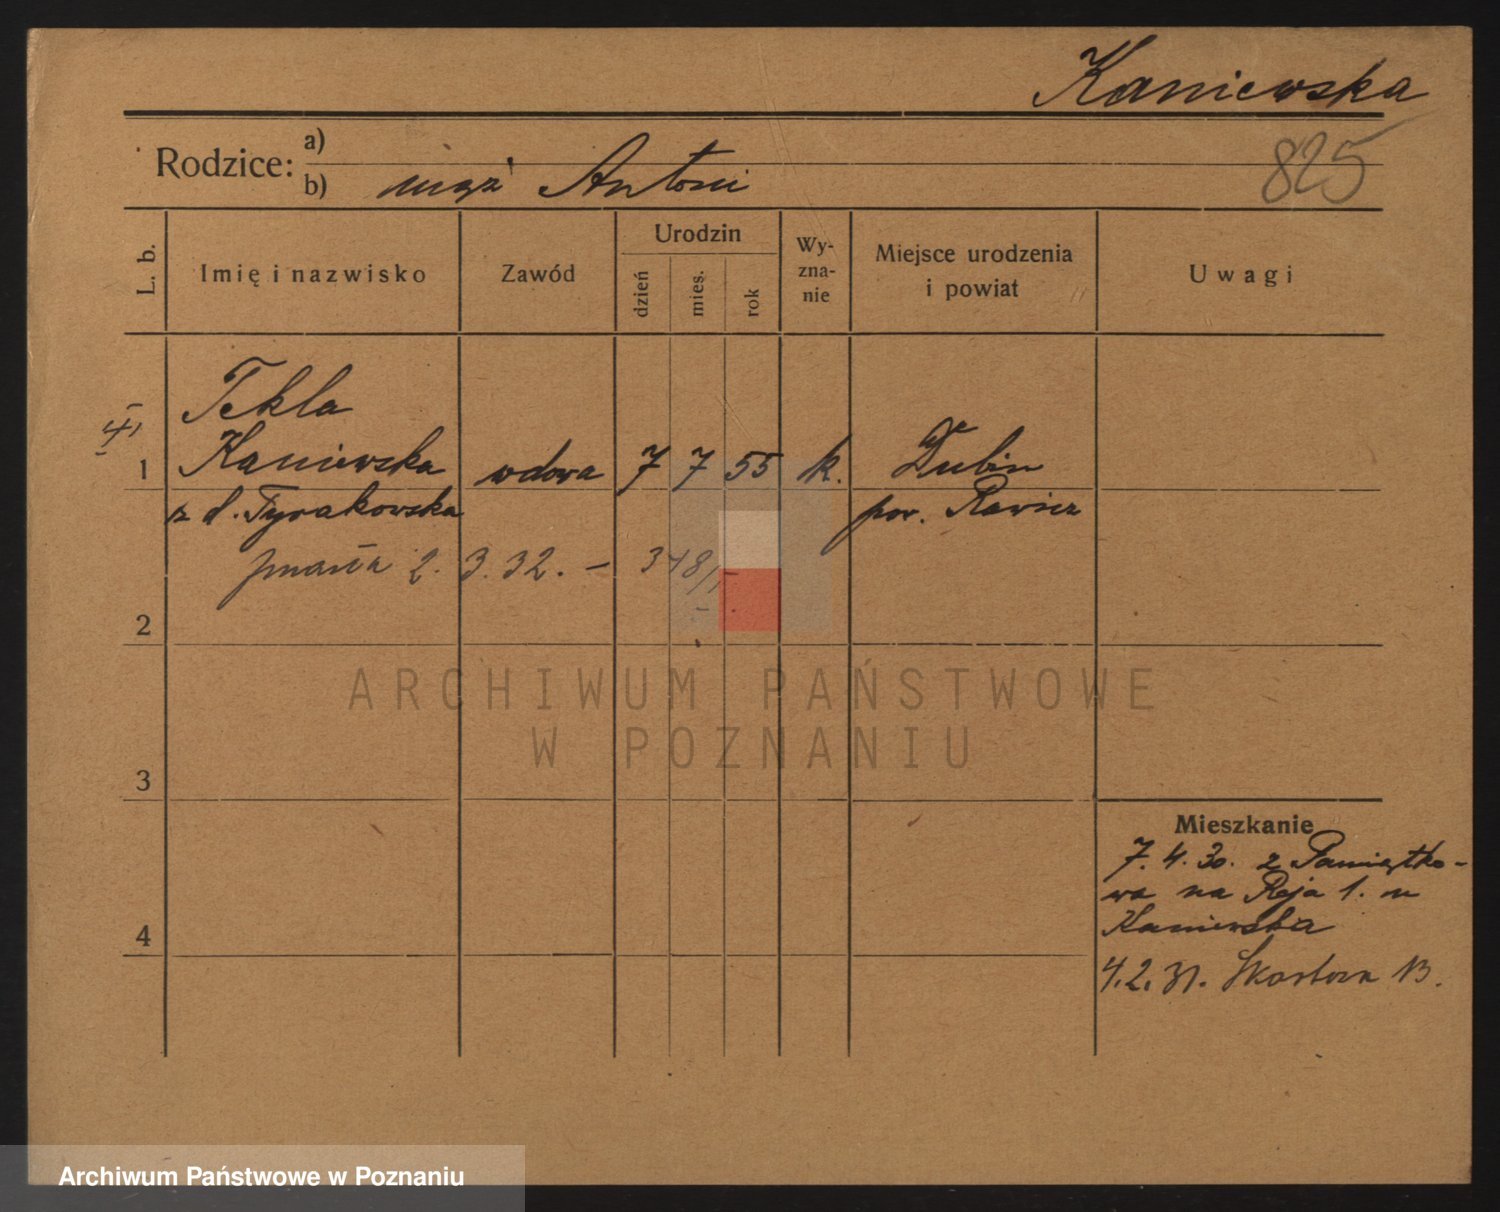 Kaniewska
825
Rodzice:
a)
b) mąż Antoni
L. b.
Imię i nazwisko
Zawód
Urodzin
dzień
mies.
rok
Wy-
zna-
nie
Miejsce urodzenia
i powiat
Uwagi
Tekla
1 Kaniewska wdowa 7 7 55 k. Dubin
z d. Tyrakowska pow. Rawicz
zmarła 2. 3. 32. –
2
3
4
Mieszkanie
7. 4. 30. z Pamiątko-
wa na Reja 1. m
Kaniewska
4.2.31.
ARCHIWUM PAŃSTWOWE
W POZNANIU
Archiwum Państwowe w Poznaniu